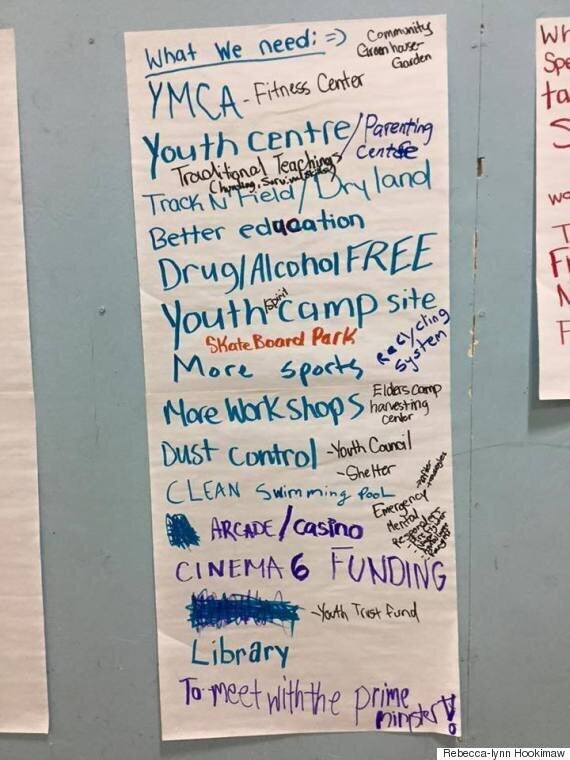 What We need: =>
Community
Greenhouse-
Garden
YMCA - Fitness Center
Youth centre / Parenting
centre
Traditional Teachings
Track N' Field / Dry land
Better education
Drug/Alcohol FREE
Youth Spirit camp site
SKate Board Park
Recycling
System
More sports
More Workshops
Elders camp
harvesting
center
Dust Control - Youth Council
- Shelter
CLEAN Swimming PooL
Emergency
Mental
ARCADE / casino
CINEMA 6 FUNDING
- Youth Trust fund
Library
To meet with the prime
minister!
Wh
Spe
ta
S
wo
T
Fi
N
F
Rebecca-lynn Hookimaw